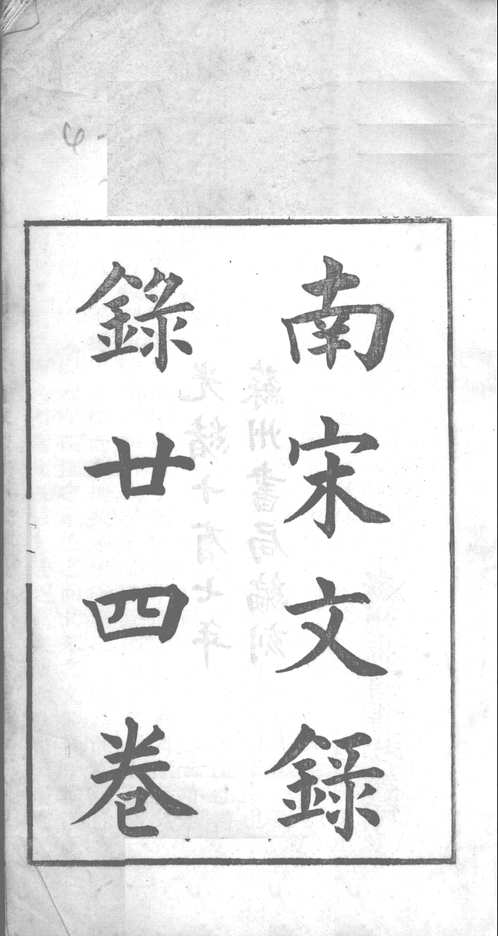 南宋文錄
錄廿四卷
光緒十有七年
蘇州書局編刻